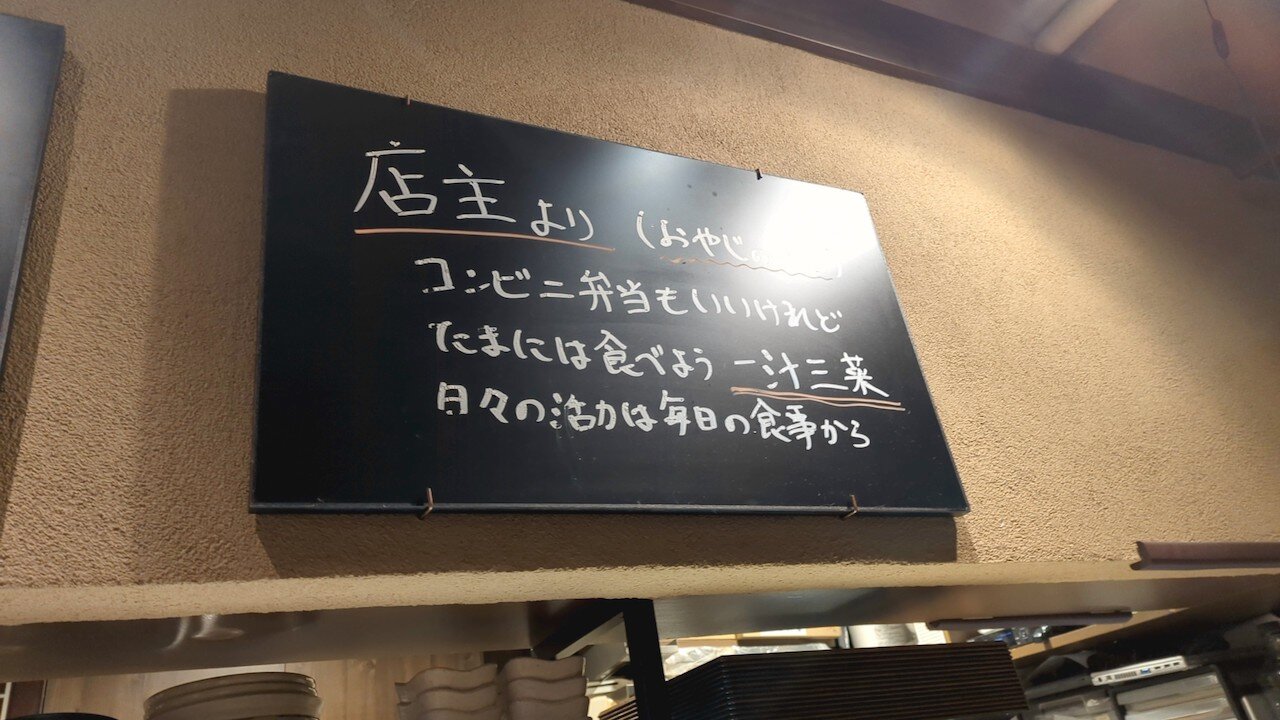 店主より (おやじ
コンビニ弁当もいいけれど
たまには食べよう 一汁三菜
日々の活力は毎日の食事から